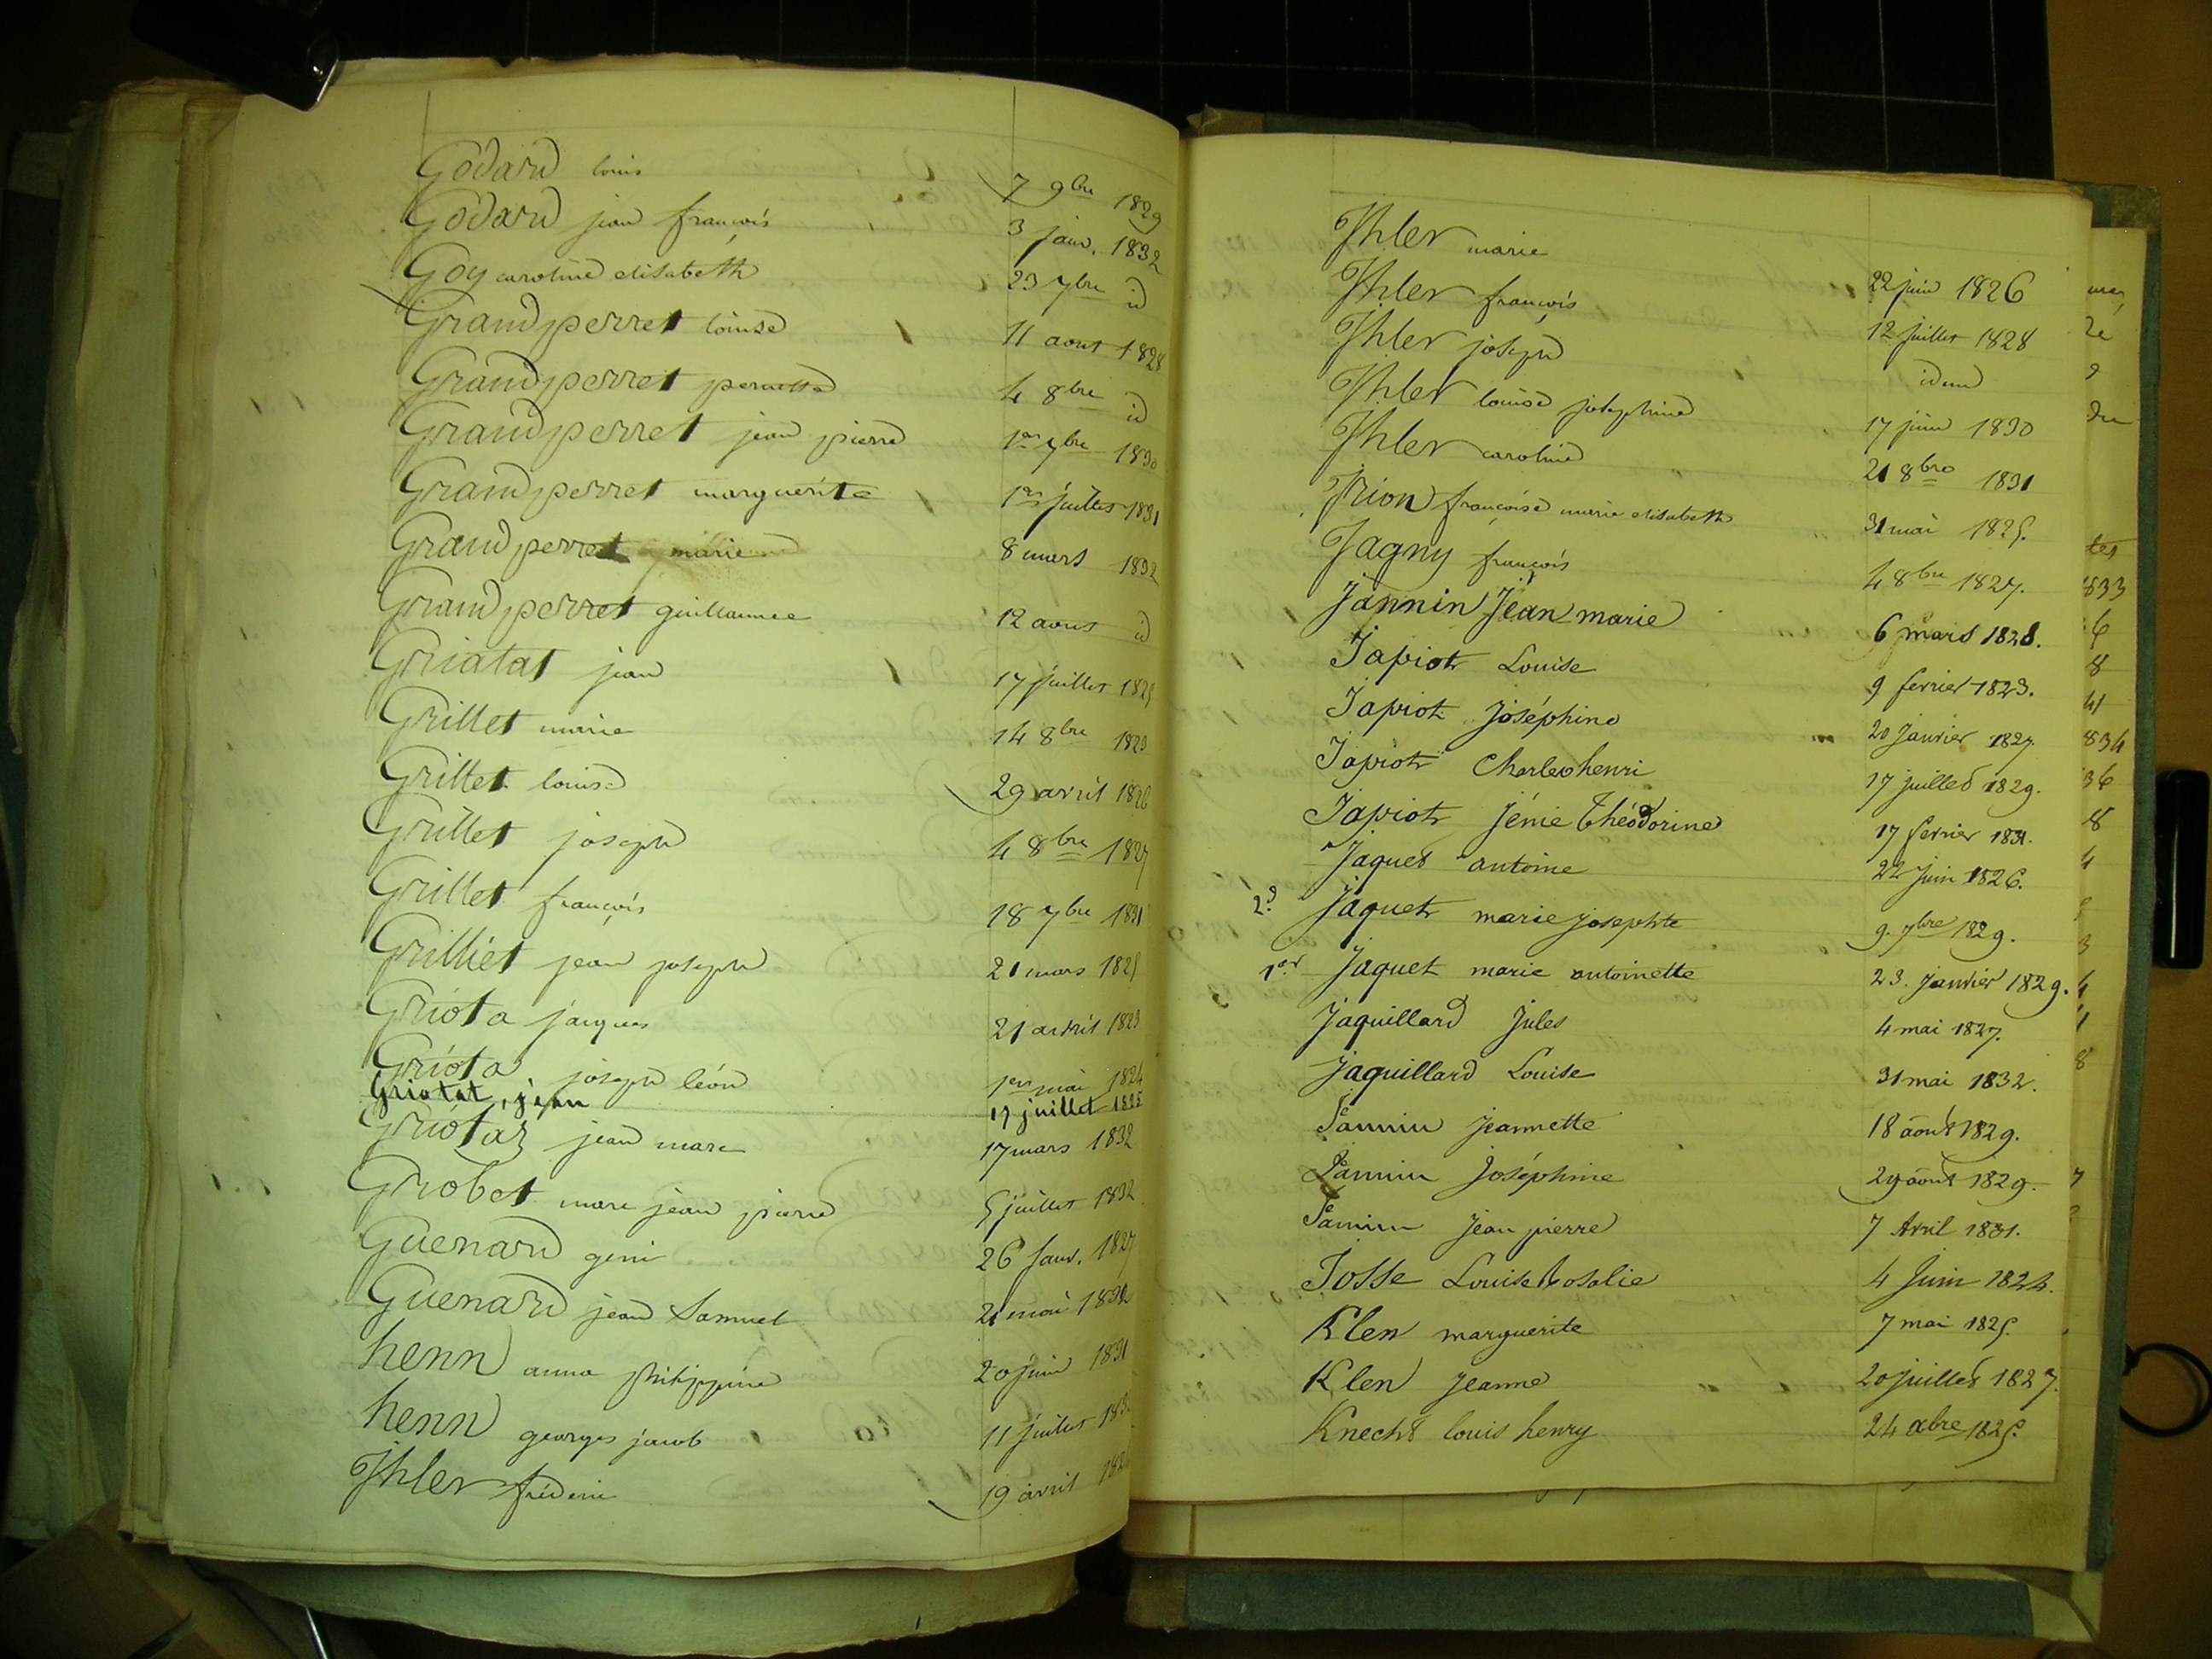 Godard louis 7 9bre 1829
Godard jean françois 3 janv. 1832
Goy caroline elisabeth 23 7bre id
Grandperret louise 11 aout 1828
Grandperret pernette 4 8bre id
Grandperret jean pierre 1er 7bre 1830
Grandperret marguerite 1er juillet 1831
Grandperret marie 8 mars 1832
Grandperret guillaume 12 aout id
Griatat jean 17 juillet
Grillet marie 14 8bre
Grillet louise 29 avril 1826
Grillet joseph 4 8bre 1827
Grillet françois 18 7bre 1831
Grilliet jean joseph 21 mars 1825
Griota jacques 21 avril 1823
Griota joseph léon 1er mai 1824
Griotat, jean 17 juillet 1825
Griotaz jean marc 17 mars 1832
Grobet marc jean pierre 5 juillet 1832
Guenard geni 26 Janv. 1827
Guenard jean Samuel 21 mai 1832
henn anna philippine 20 juin 1831
henn georges jacob 11 juillet
Jhler fréderic 19 avril
Jhler marie 22 juin 1826
Jhler françois 12 juillet 1828
Jhler joseph idem
Jhler louise josephine 17 juin 1830
Jhler caroline 21 8bre 1831
Jrion françoise marie elisabeth 31 mai 1825.
Jagny françois 4 8bre 1827.
Jannin Jean marie 6 mars 1828.
Japiot Louise 9 fevrier 1823.
Japiot Joséphine 20 Janvier 1827.
Japiot Charles henri 17 juillet 1829.
Japiot Jénie Théodorine 17 fevrier 1831.
Jaquet antoine 22 Juin 1826.
2d Jaquet marie josephte 9. 7bre 1829.
1er Jaquet marie antoinette 23. Janvier 1829.
Jaquillard Jules 4 mai 1827.
Jaquillard Louise 31 mai 1832.
Jeannin Jeannette 18 août 1829.
Jeannin Joséphine 29 août 1829.
Jeannin Jean pierre 7 Avril 1831.
Josse Louise Rosalie 4 Juin 1824.
Klen marguerite 7 mai 1825.
Klen Jeanne 20 juillet 1827.
Knecht louis henry 24 xbre 1825.